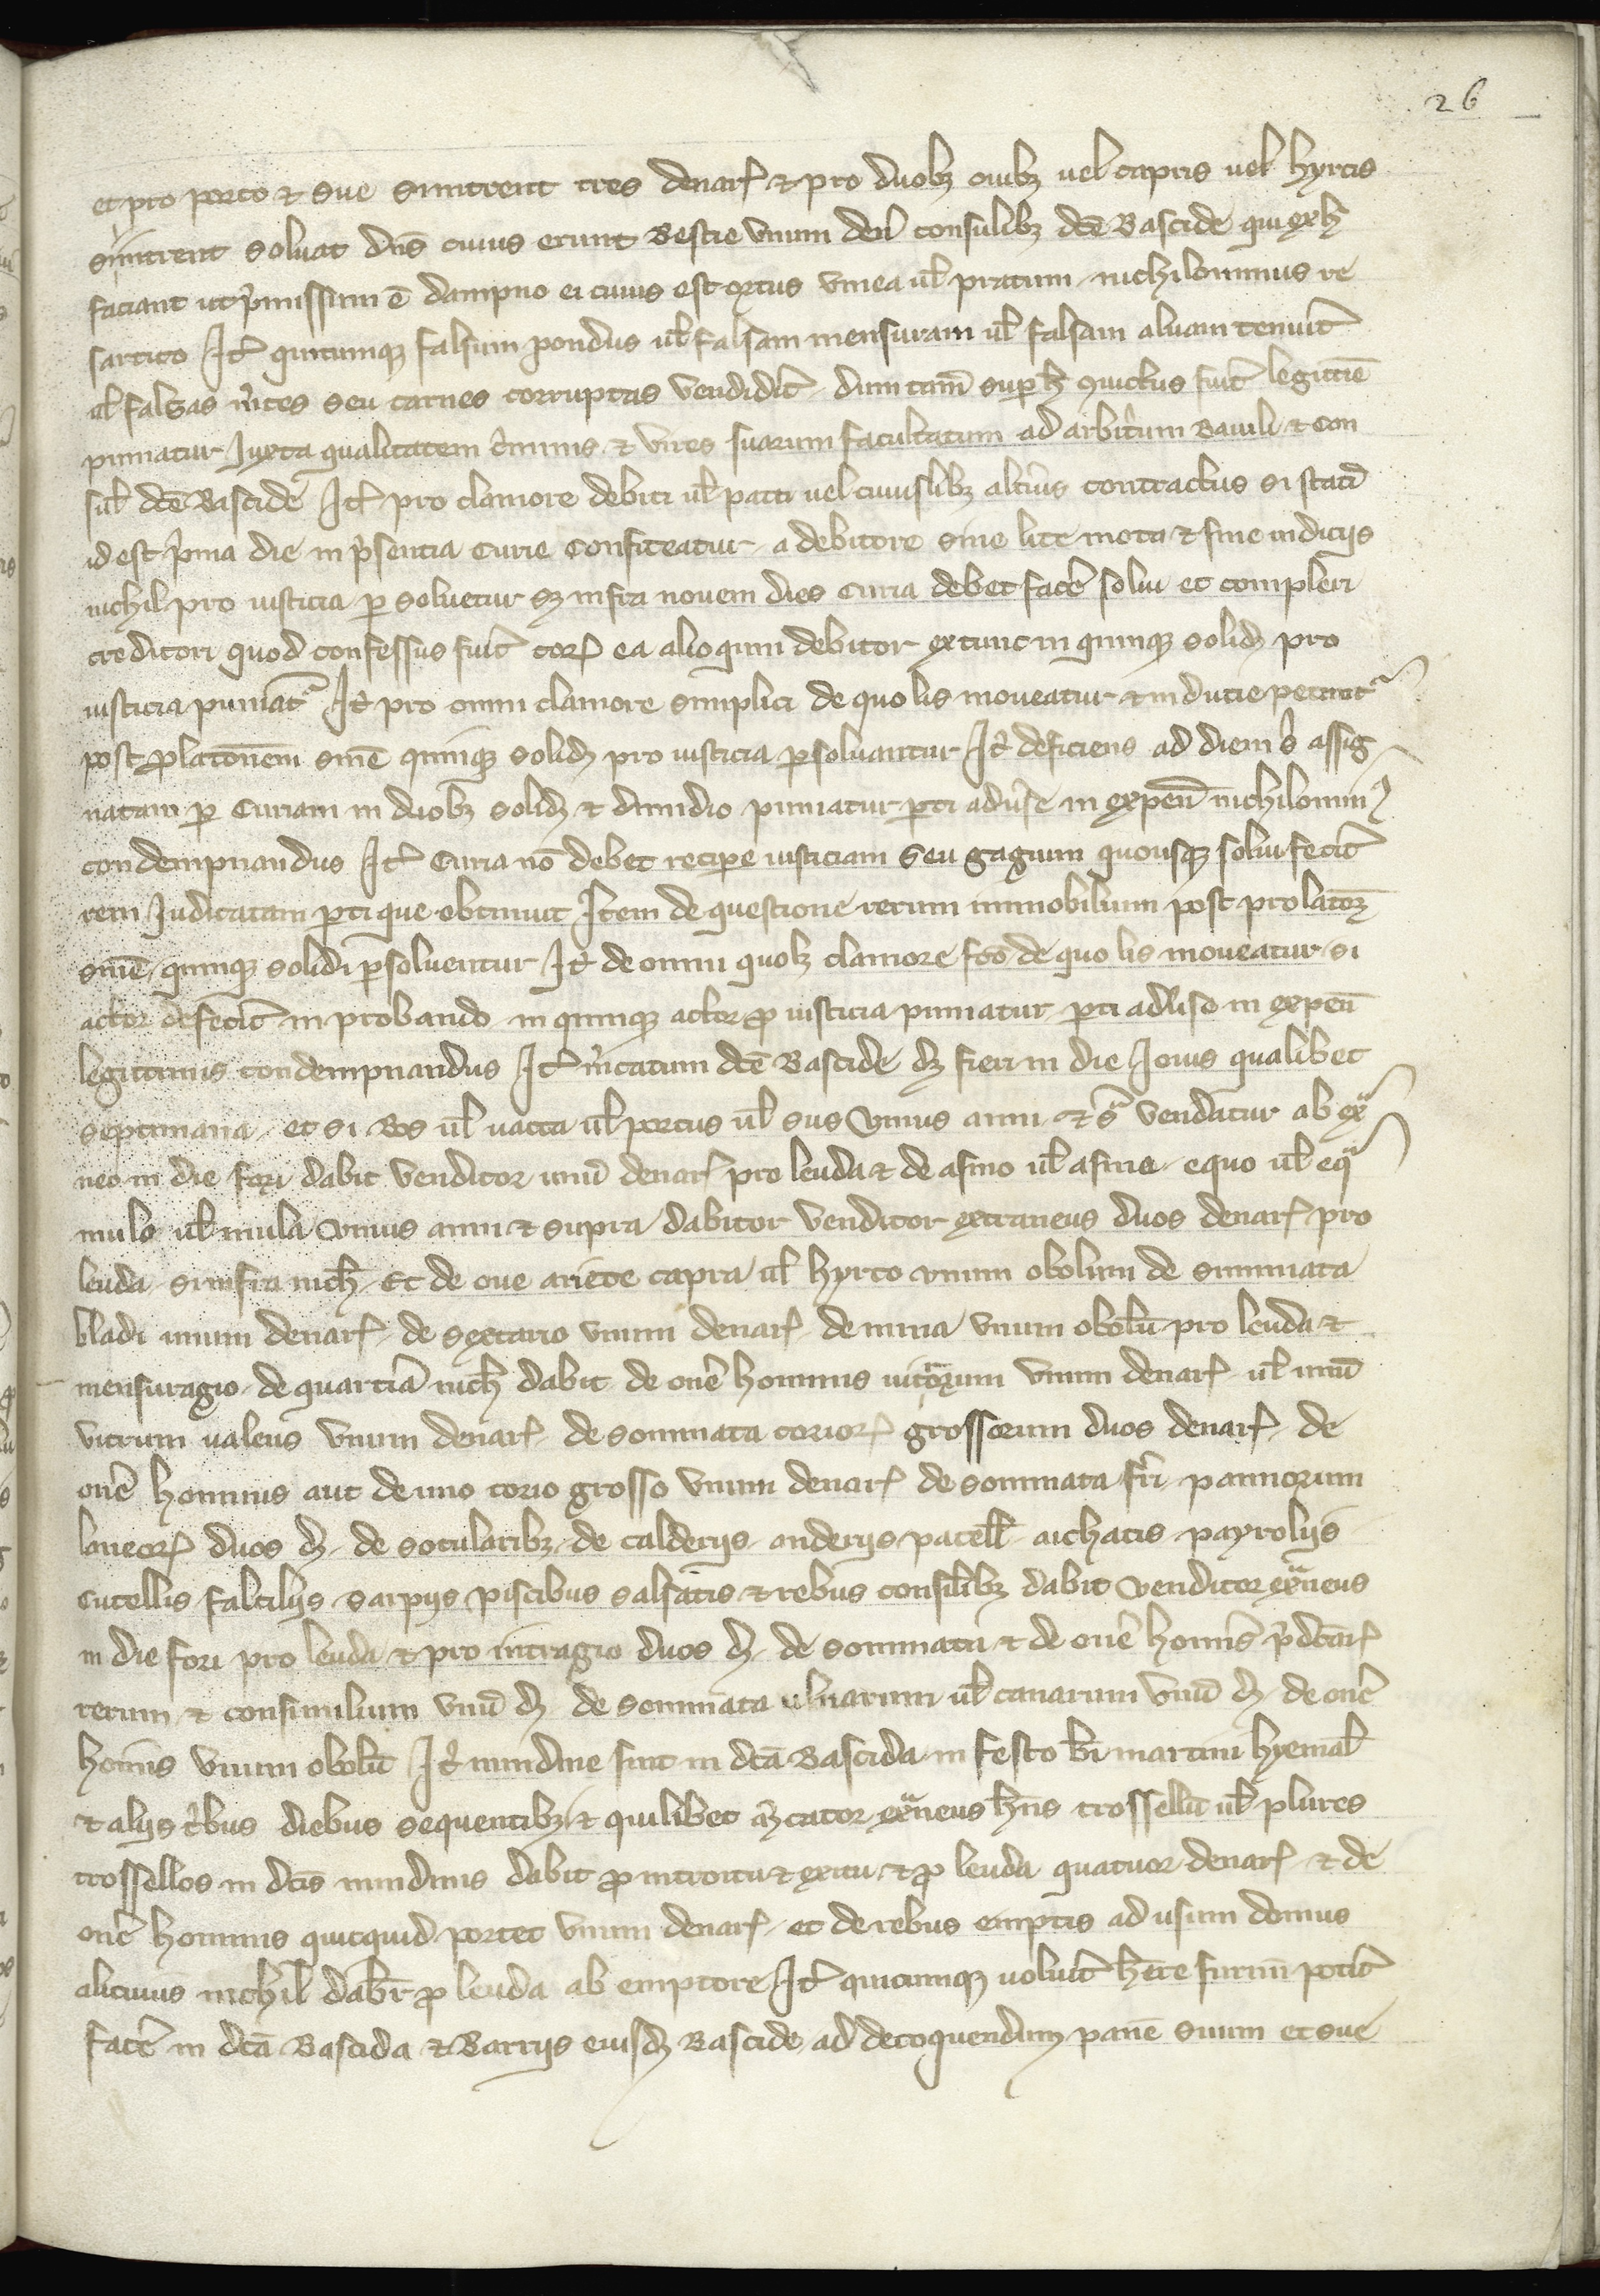 26
et pro porco & sue si intrent tres denar & pro duobz ouibz uel capris uel hyrcis
si intrent soluat dns cuius erunt Bestie vnum den consulibz dce Bascide qui exh
faciant ut pmissum e dampno ei cuius est ortus vinea ul pratum nichilominus re
sartito It quicumqz falsum pondus ul falsam mensuram ul falsam alnam tenuit
ul falsas mces seu carnes corruptas vendidit dum tam sup h conuictus fuit legittie
puniatur Juxta qualitatem cminis & vires suarum facultatum ad arbitium Baiuli & con
sul dce Bascide It pro clamore debiti ul pacti uel cuiuslibz altius contractus si stati
id est pma die in psentia Curie Confiteatur a debitore sine lite mota & sine indiciis
nichil pro iusticia p soluetur sz infra nouem dies Curia debet face solui et compleri
creditori quod confessus fuit cor ea alioquin debitor extunc in quinqz solid pro
iusticia puniat It pro omni clamore simplici de quo lis moueatur & inducie petant
post plationem snie quinqz solid pro iusticia psoluantur It deficiens ad diem s assig
natam p Curiam in duobz solid & dimidio puniatur pti aduse in expen nichilomin
condempnandus It Curia no debet recipe iusticiam seu gagium quousqz solui fecit
rem Judicatam pti que obtinuit Item de questione rerum immobilium post prolacoz
snie quinqz solidi psoluentur It de omni quolz clamore fco de quo lis moueatur si
actor defecit in probando in quinqz actor p iusticia puniatur pti aduso in expen
legittimis condempnandus It mcatum dce Bascide dz fieri in die Jouis qualibet
septimana et si Bos ul vacca ul porcus ul sus vnius anni & s vendatur ab ex
neo in die fori dabit venditor unu denar pro leuda & de asino ul asina equo ul eq
mulo ul mula vnius anni & supra dabitor venditor extraneus duos denar pro
leuda si infra nich Et de oue ariete capra ul hyrco vnum obolum de summata
bladi unum denar de sextario vnum denar de mina vnum obolu pro leuda &
mensuragio de quartia nich dabit de one hominis uitorum vnum denar ul unu
vitrum ualens vnum denar de sommata corior grossorum duos denar de
one hominis aut de uno corio grosso vnum denar de sommata fri pannorum
laneor duos d de socularibz de calderiis anderiis patell aichatis payroliis
cutellis falciliis sarpiis piscibus salsatis & rebus consilibz dabit venditor exneus
in die fori pro leuda & pro intragio duos d de sommata & de one homis pdcar
rerum & consimilium vnu d de sommata ulnarum ul canarum vnu d de one
homis vnum obolu It nundine sint in dca Bascida in festo bi martini hyemal
& aliis tbus diebus sequentibz & quilibet mcator exneus hns trossellu ul plures
trossellos in dcis nundinis dabit p introitu & exitu & p leuda quatuor denar & de
one hominis quicquid portet vnum denar et de rebus emptis ad usum domus
alicuius nichil dabr p leuda ab emptore It quicumqz uoluit hre furnu potit
face in dca Bascida & Barriis eiusd Bascide ad decoquendum pane suum et sue